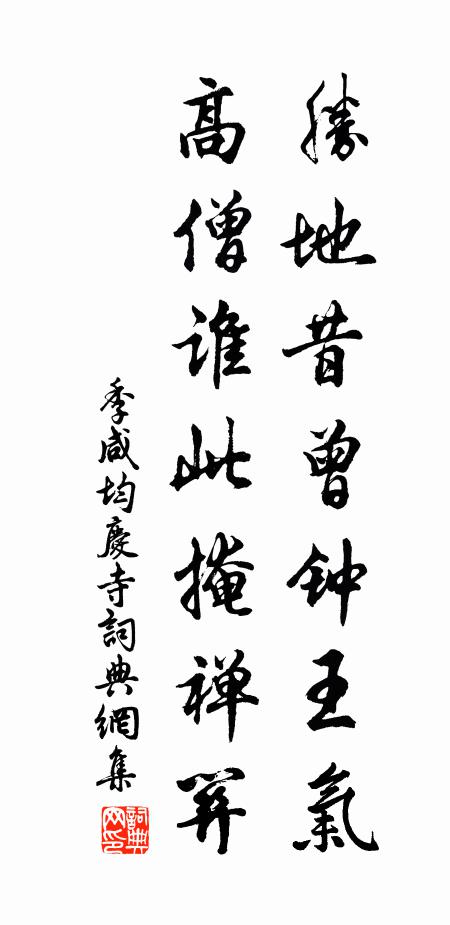 勝地昔曾钟王氣
高僧谁此掩禅關
季咸均慶寺詞典網集
詞典
网印